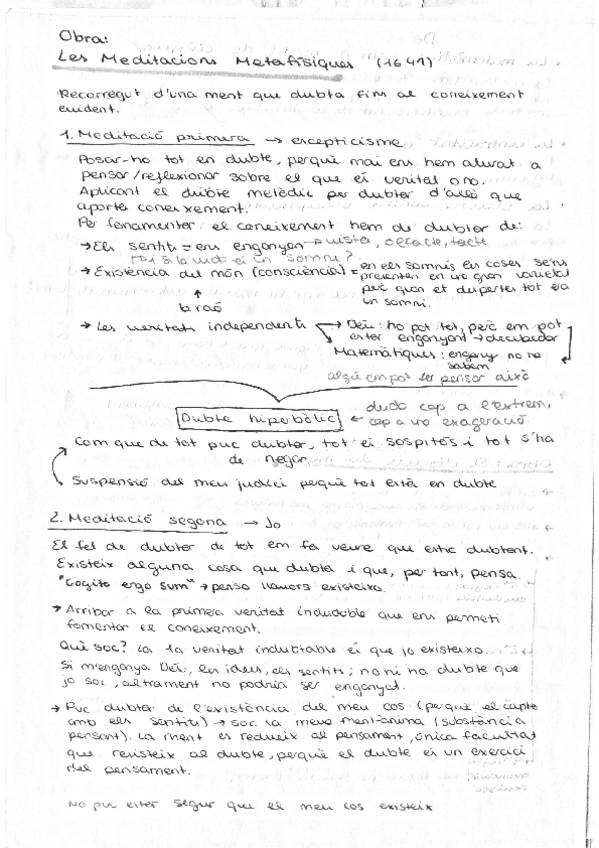 Obra:
Les Meditacions Metafísiques (1641)
Recorregut d'una ment que dubta fins al coneixement
evident.
1. Meditació primera → escepticisme
Posar-ho tot en dubte, perquè mai ens hem aturat a
pensar/reflexionar sobre el que és veritat o no.
Aplicant el dubte metòdic per dubtar d'allò que
aporta coneixement.
Per fonamentar el coneixement hem de dubtar de:
→ Els sentits = ens enganyen → vista, olfacte, tacte
i si la vida és un somni?
→ Existència del món (consciència) = en els somnis les coses se'ns
presenten en una gran varietat
però quan et despertes tot era
un somni.
↑
braó
→ Les veritats independents → Déu: ho pot tot, però em pot
estar enganyant → decibedor
Matemàtiques: engany no ho
sabem
algú em pot fer pensar això
Dubte hiperbòlic ← duda cap a l'extrem,
cap a una exageració
Com que de tot puc dubtar, tot és sospitós i tot s'ha
de negar
Suspensió del meu judici perquè tot està en dubte
2. Meditació segona → Jo
El fet de dubtar de tot em fa veure que estic dubtant.
Existeix alguna cosa que dubta i que, per tant, pensa.
"Cogito ergo sum" → penso llavors existeixo.
→ Arribar a la primera veritat indudable que ens permeti
fomentar el coneixement.
Què soc? La 1a veritat indubtable és que jo existeixo.
Si m'enganya Déu, les idees, els sentits; no hi ha dubte que
jo soc, altrament no podria ser enganyat.
→ Puc dubtar de l'existència del meu cos (perquè el capto
amb els sentits) → soc la meva ment-ànima (substància
pensant). La ment es redueix al pensament, única facultat
que resisteix al dubte, perquè el dubte és un exercici
del pensament.
No puc estar segur que el meu cos existeix